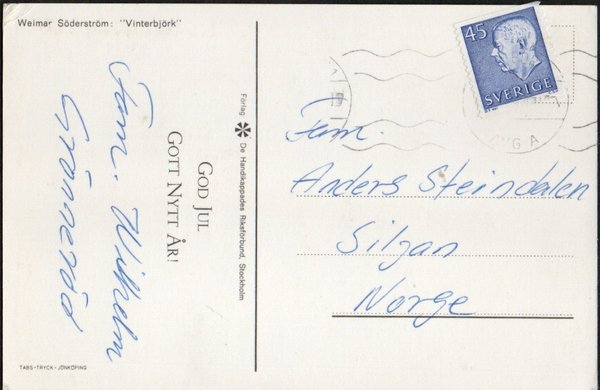 Weimar Söderström: "Vinterbjörk"
Fam. Wilhelm
GOD JUL
GOTT NYTT ÅR!
Förlag De Handikappades Riksförbund, Stockholm
TABS-TRYCK-JÖNKÖPING
45
SVERIGE
Fam.
Anders Steindalen
Siljan
Norge